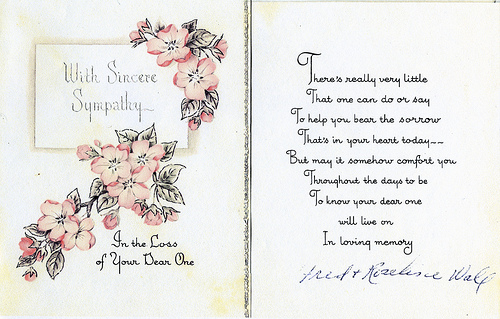 With Sincere
Sympathy
In the Loss
of Your Dear One
There's really very little
That one can do or say
To help you bear the sorrow
That's in your heart today--
But may it somehow comfort you
Throughout the days to be
To know your dear one
will live on
In loving memory
Fred + Roseline